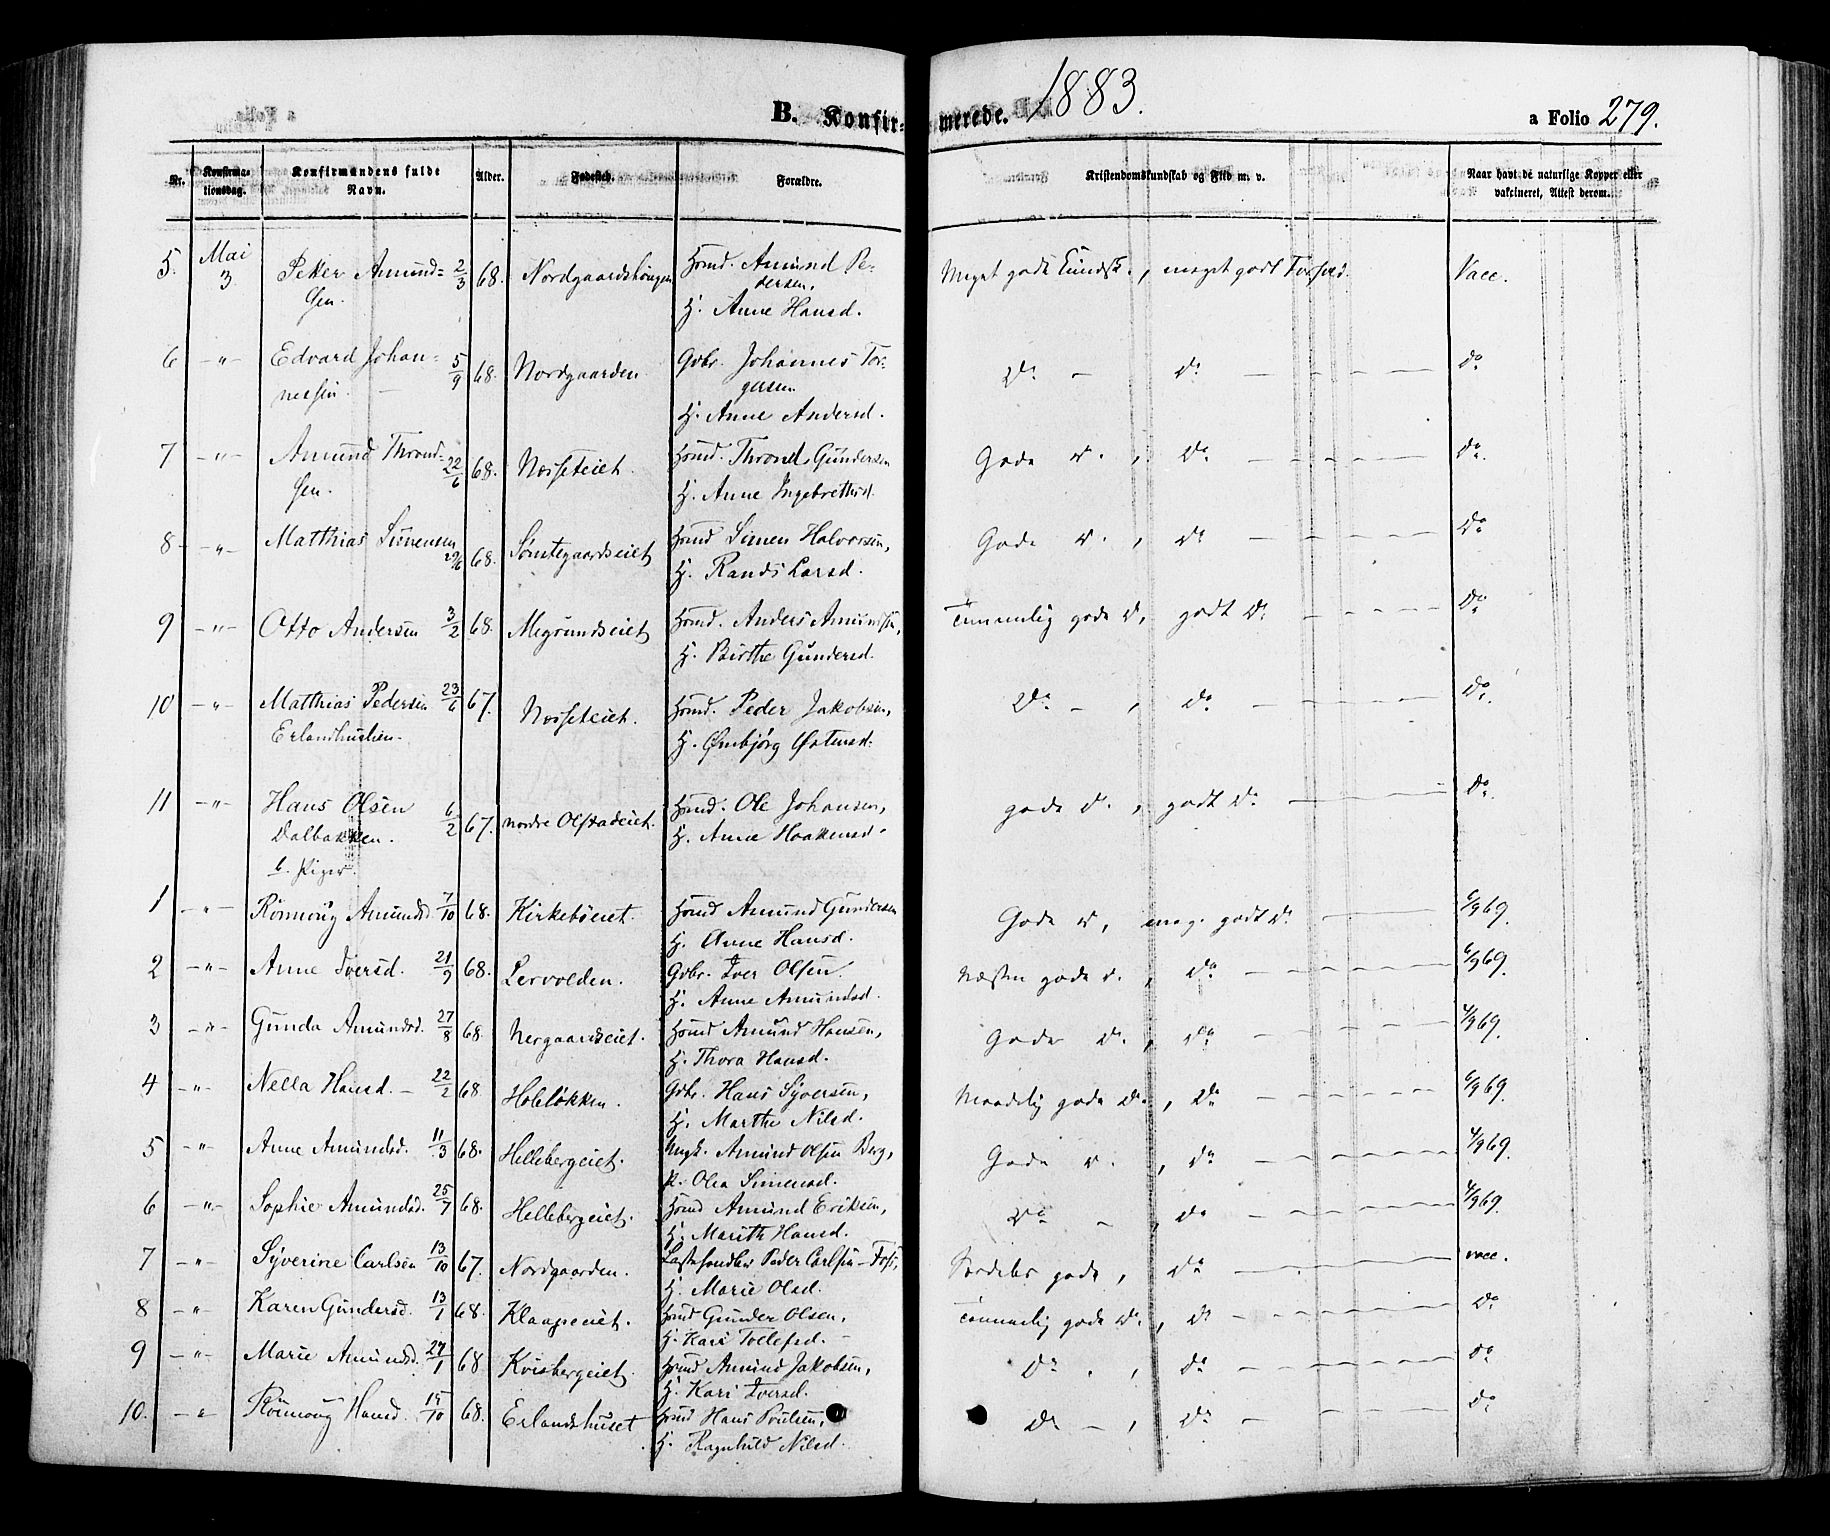 B. Konfirmerede. 1883. a Folio 279.
Nr. Konfirmationsdag. Konfirmandens fulde Navn. Alder. Fødested. Forældre. Kristendomskundskab og Flid m. v. Naar havt de naturlige Kopper eller vakcineret, Attest derom.
5. Mai 3. Peter Amund= 2/3 68. Nordgaardshougen Hsmd. Amund Pe- Meget gode Kundsk., meget godt Forhold. Vacc.
sen. dersen,
H. Anne Hansd.
6 -"- Edvard Johan- 5/9 68. Nordgaarden. Gdbr. Johannes Tor- Do - Do - - - - do
nessen. gersen
H. Anne Andersd.
7 -"- Amund Thrond- 22/6 68. Nosseteiet. Hsmd. Thrond Gundersen Gode D., Do - - - - do.
sen. H. Anne Ingebretsd.
8 -"- Matthias Simensen 29/6 68. Sømtegaardseiet Hsmd Simen Halvorsen, Gode D., Do - - - - Do
H. Randi Larsd.
9 -"- Otto Andersen 3/2 68. Megrundseiet Hsmd. Anders Amundsen, Temmelig gode D, godt Do - - - - Do
H. Birthe Gundersd.
10 -"- Matthias Pedersen 23/6 67. Nosseteiet. Hsmd. Peder Jakobsen, Do -, Do - - - - Do.
Erlandhuslien. H. Ømbjørg Østensd.
11 -"- Hans Olsen 6/2 67. nordre Olstadeiet. Hsmd. Ole Johansen, gode D., godt Do - - - - Do.
Dalbakken. H. Anne Haakensd.
b. Piger.
1 -"- Rønnoug Amundsd. 7/10 68. Kirkebøeiet. Hsmd Amund Gundersen Gode D, meg. godt Do - - - 6/9 69.
H. Anne Hansd.
2 -"- Anne Iversd. 21/9 68. Lervolden. Gdbr. Iver Olsen. Næsten gode D., Do - - - - 6/9 69.
H. Anne Amundsd.
3 -"- Gunda Amundsd. 27/8 68. Nergaardseiet. Hsmd Amund Hansen, Gode D., Do - - - - 4/9 69.
H. Thora Hansd.
4 -"- Nella Hansd. - 22/2 68 Holeløkken. Gdbr. Hans Syversen, Maadelig gode Do, Do - - - - 6/9 69.
H. Marthe Nilsd.
5 -"- Anne Amundsd. 11/3 68. Hellebergeiet. Ungk. Amund Olsen Berg, Gode D., Do - - - - 4/9 69.
P. Olea Simensd.
6 -"- Sophie Amundsd. 25/7 68. Hellebergeiet. Hsmd Amund Eriksen, Do -, do - - - - 4/9 69.
H. Marith Hansd.
7 -"- Syverine Carlsen 13/10 67. Nordgaarden. Peder Carlsen - Særdeles gode, Do - - - - vacc.
H. Marie Olsd.
8 -"- Karen Gundersd. 13/1 68. Klaapeeiet. Hsmd Gunder Olsen, Temmelig gode D., Do - - - - Do
H. Kari Tollefsd. -
9 -"- Marie Amundsd. 27/1 68 Kvisbergeiet. Hsmd Amund Jakobsen, Do., Do - - - - Do
H. Kari Iversd.
10. -"- Rønnoug Hansd. 15/10 68. Erlandshuset Hsmd Hans Poulsen, Do -, Do - - - - Do
H. Ragnhild Nilsd.